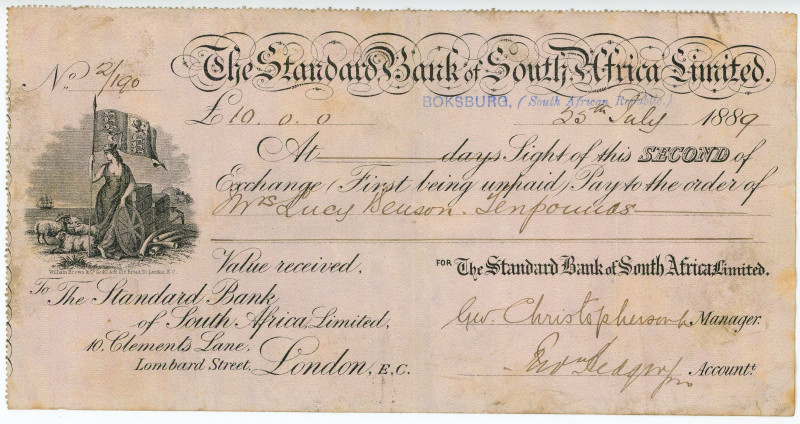 The Standard Bank of South Africa Limited.
No. 2/190
BOKSBURG, (South African Republic.)
£10. 0. 0 25th July 1889
At days Sight of this SECOND of
Exchange (First being unpaid) Pay to the order of
Mrs Lucy Benson. Ten pounds
William Brown & Co. London, E.C.
Value received.
FOR The Standard Bank of South Africa Limited.
To The Standard Bank
of South Africa, Limited,
10, Clements Lane,
Lombard Street, London, E.C.
Geo. Christopherson Manager.
Accountt.